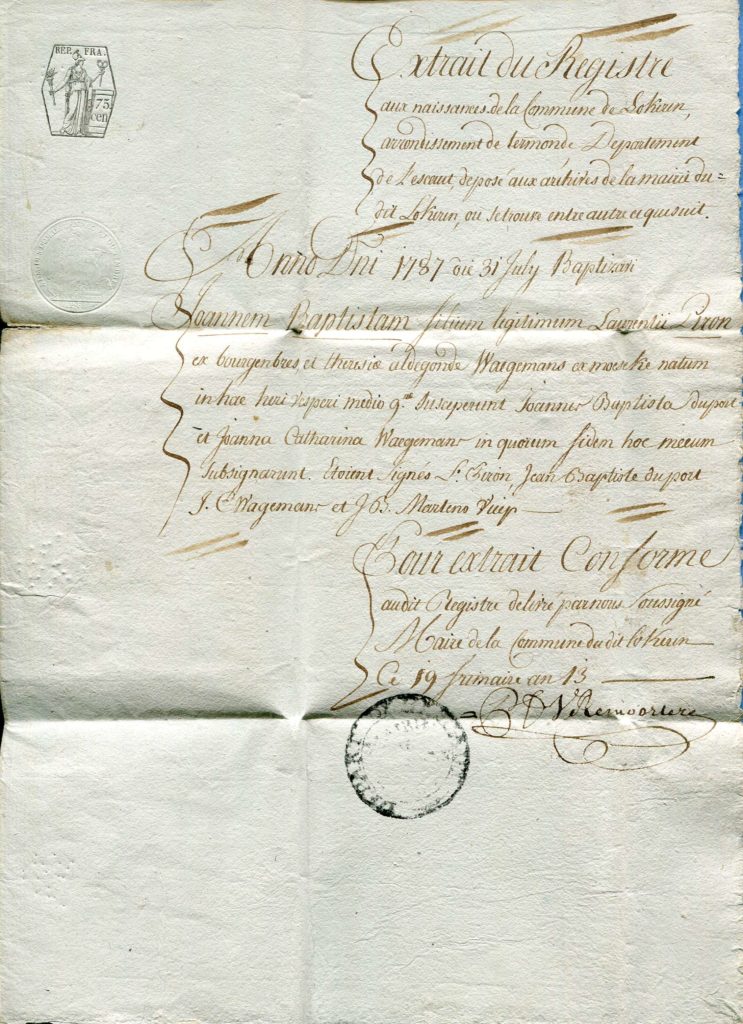 REP. FRA.
75
cen
Extrait du Registre
aux naissances de la Commune de Lokeren,
arrondissement de termonde Departement
de l'escaut, deposé aux archives de la mairie du=
dit Lokeren, ou se trouve entre autre ce qui suit.
Anno Dni 1787 die 31 July Baptizavi
Joannem Baptistam filium legitimum Laurentii Piron
ex bourgenbres, et theresiæ aldegonde Waegemans ex moerke natum
in hac heri vesperi medio susceperunt Joannes Baptista duport
et Joanna Catharina Waegemans in quorum fidem hoc mecum
subsignarunt. Etoient signés L. Piron, Jean Baptiste duport
J. C Wagemans et J B. Martens
Pour extrait Conforme
audit Registre delivré par nous soussigné
Maire de la Commune du dit lokeren
Ce 19 frimaire an 13
DEPART. DE